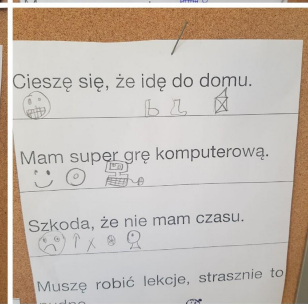 Cieszę się, że idę do domu.
Mam super grę komputerową.
Szkoda, że nie mam czasu.
Muszę robić lekcje, strasznie to